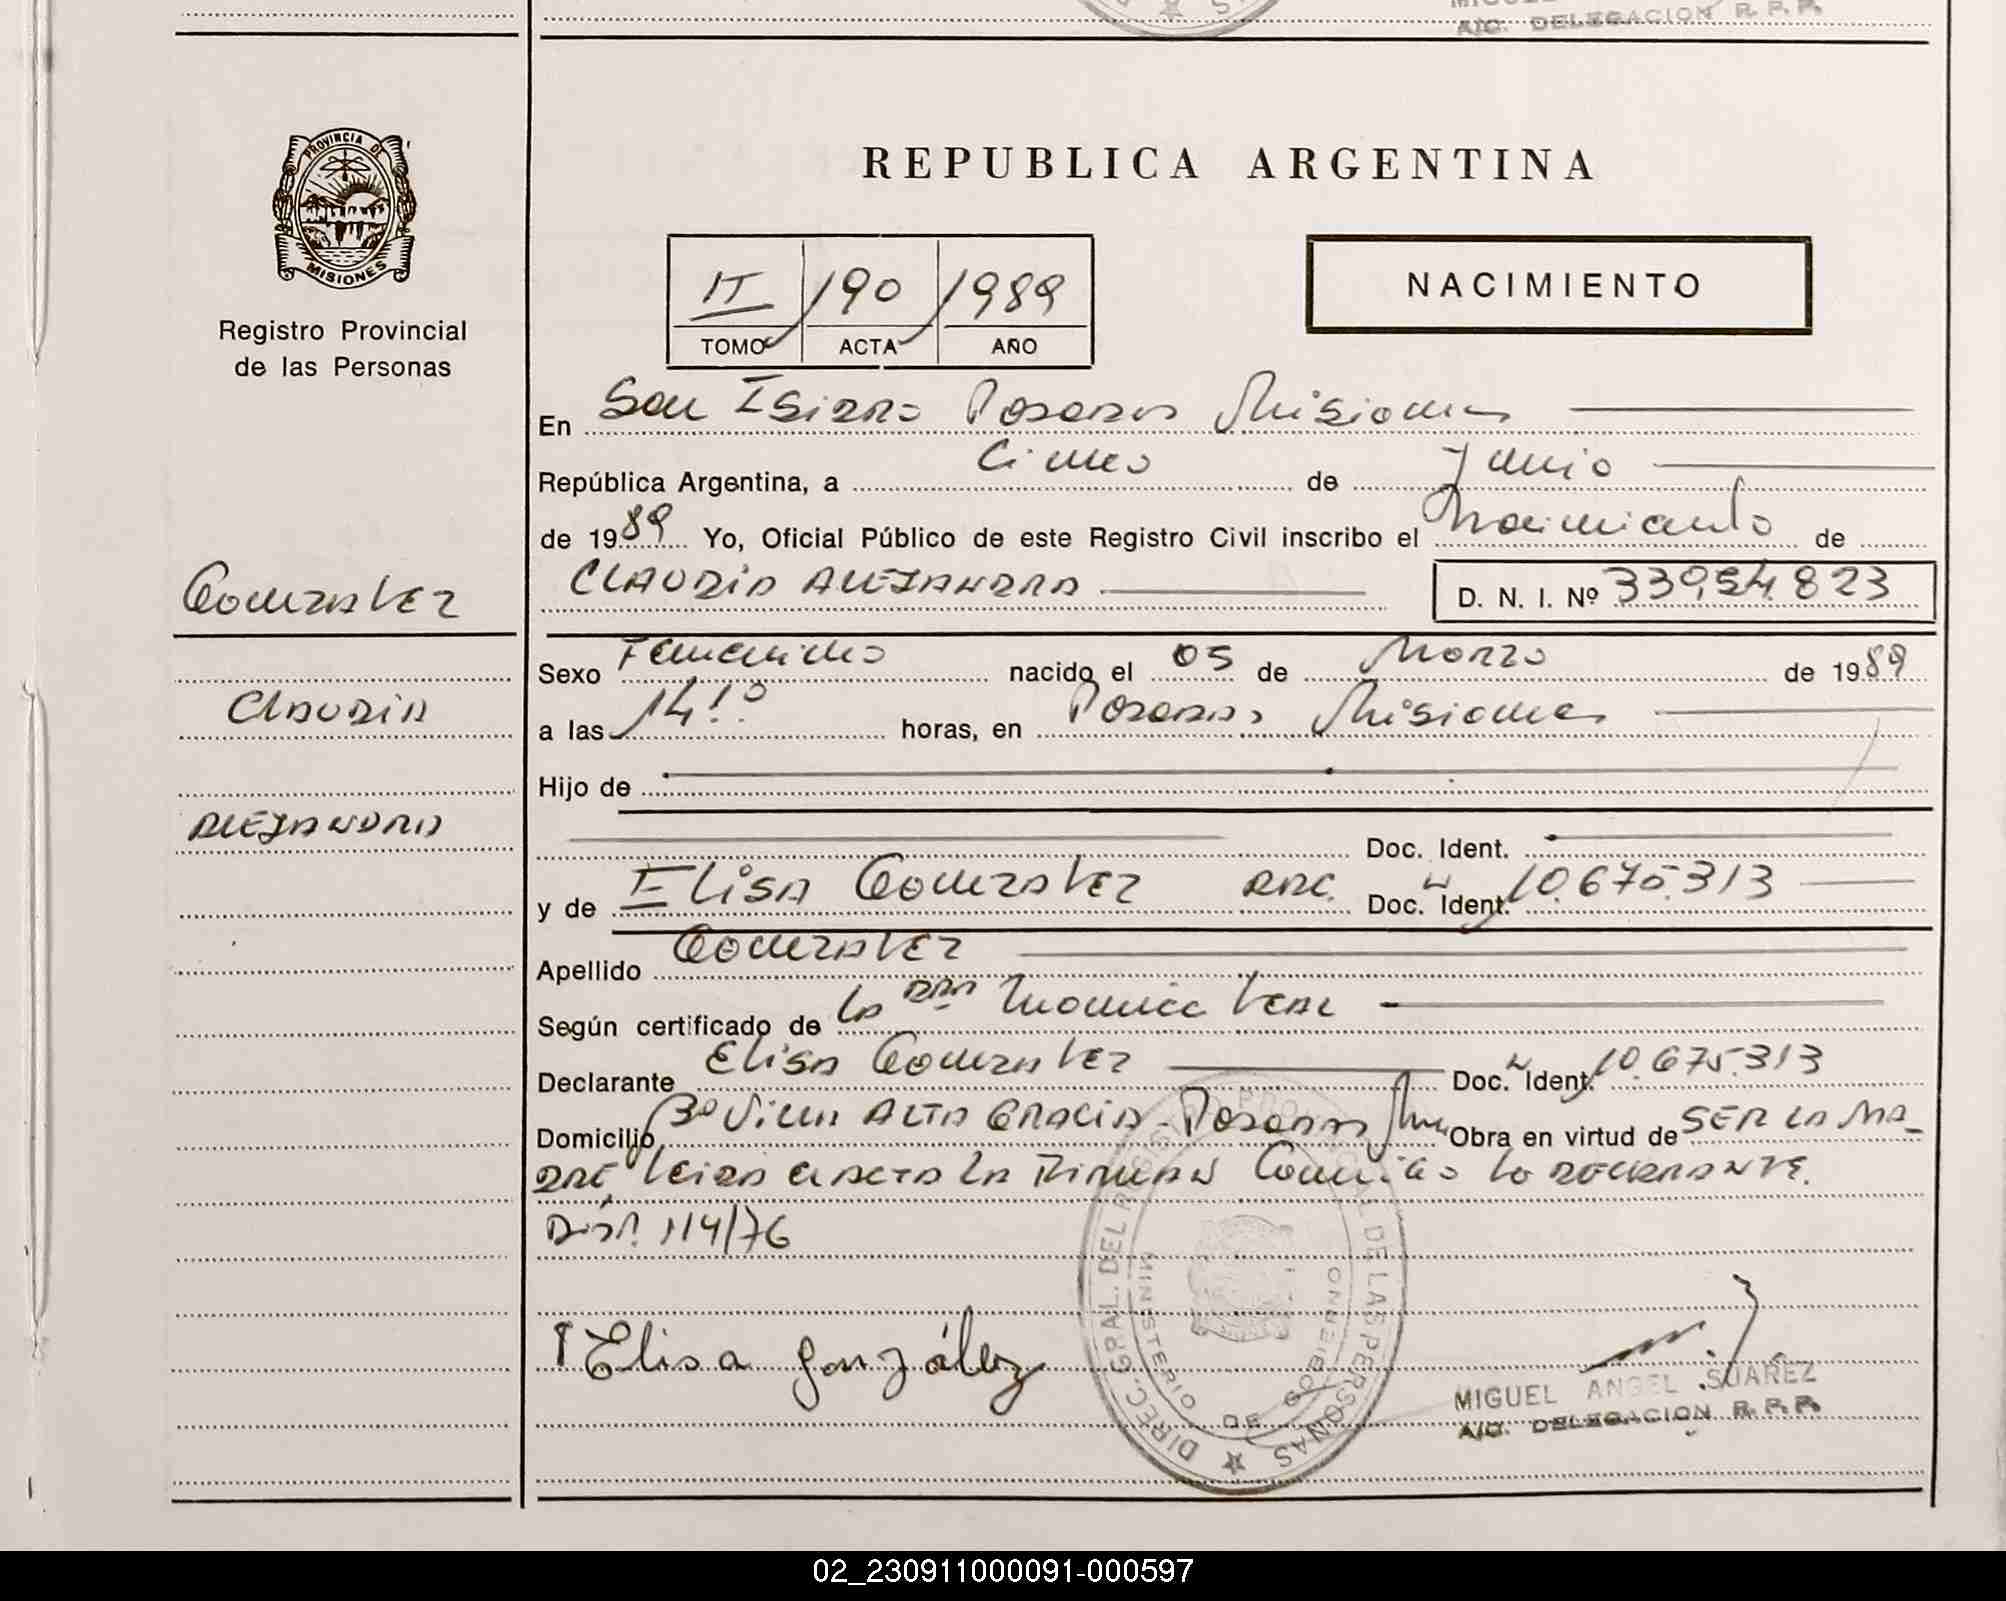 A/C. DELEGACION R. P. P.
PROVINCIA DE
MISIONES
Registro Provincial
de las Personas
REPUBLICA ARGENTINA
II 190 1989
TOMO ACTA AÑO
NACIMIENTO
En San Isidro Posadas Misiones
República Argentina, a Cinco de Junio
de 1989 Yo, Oficial Público de este Registro Civil inscribo el Nacimiento de
CLAUDIA ALEJANDRA D. N. I. Nº 33954823
Gonzalez
Sexo Femenino nacido el 05 de Marzo de 1989
Claudia
a las 14: horas, en Posadas Misiones
Hijo de
Alejandra
Doc. Ident.
y de Elisa Gonzalez Doc. Ident. 10.675.313
Apellido Gonzalez
Según certificado de la Dra
Declarante Elisa Gonzalez Doc. Ident. 10.675.313
Domicilio Bº Villa Alta Gracia Posadas Obra en virtud de SER LA MA_
DRE Leida el acta la firman Conmigo la declarante.
Disp. 114/76
Elisa González
DIREC. GRAL. DEL REGISTRO PROVINCIAL DE LAS PERSONAS
MINISTERIO DE GOBIERNO
MIGUEL ANGEL SUAREZ
A/C. DELEGACION R. P. P.
02_230911000091-000597